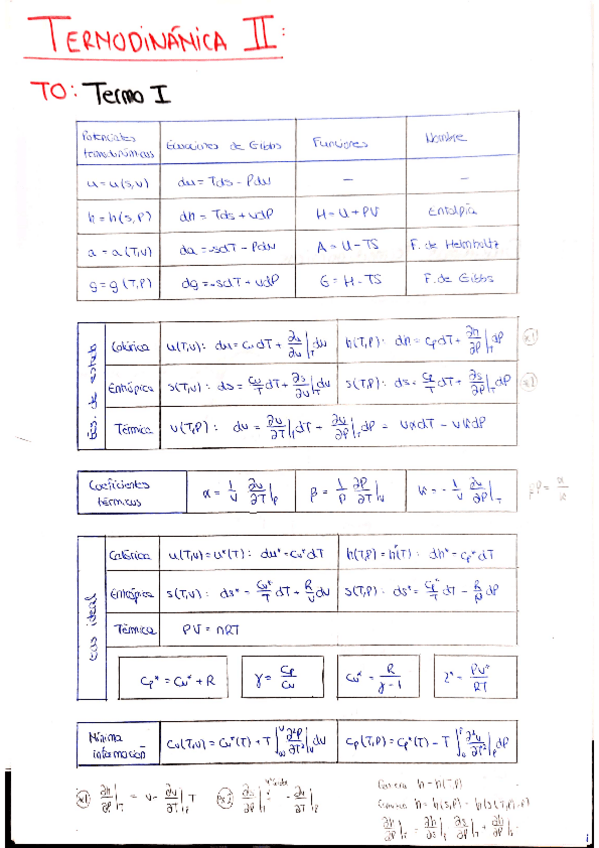 TERMODINÁMICA II:
TO: Termo I
Potenciales termodinámicos | Ecuaciones de Gibbs | Funciones | Nombre
u = u(s,v) | du = Tds - Pdv | — | —
h = h(s,P) | dh = Tds + vdP | H = U + PV | Entalpía
a = a(T,v) | da = -sdT - Pdv | A = U - TS | F. de Helmholtz
g = g(T,P) | dg = -sdT + vdP | G = H - TS | F. de Gibbs
Ecs. de estado
Calórica | u(T,v): du = Cv dT + ∂u/∂v|T dv | h(T,P): dh = Cp dT + ∂h/∂P|T dP (*1)
Entrópica | s(T,v): ds = Cv/T dT + ∂s/∂v|T dv | s(T,P): ds = Cp/T dT + ∂s/∂P|T dP (*2)
Térmica | v(T,P): dv = ∂v/∂T|P dT + ∂v/∂P|T dP = vαdT - vκdP
Coeficientes térmicos | α = 1/v ∂v/∂T|P | β = 1/P ∂P/∂T|v | κ = - 1/v ∂v/∂P|T | βP = α/κ
Gas ideal
Calórica | u(T,v) = u*(T): du* = Cv* dT | h(T,P) = h*(T): dh* = Cp* dT
Entrópica | s(T,v): ds* = Cv*/T dT + R/v dv | s(T,P): ds* = Cp*/T dT - R/P dP
Térmica | PV = nRT
Cp* = Cv* + R | γ = Cp/Cv | Cv* = R/γ-1 | z* = Pv*/RT
Mínima información | Cv(T,v) = Cv*(T) + T ∫∞^v ∂²P/∂T²|v dv | Cp(T,P) = Cp*(T) - T ∫0^P ∂²v/∂T²|P dP
(*1) ∂h/∂P|T = v - ∂v/∂T|P T (*2) ∂s/∂P|T = - ∂v/∂T|P
h = h(T,P)
h = h(s,P) =
∂h/∂P|T = ∂h/∂s|P ∂s/∂P|T + ∂h/∂P|s